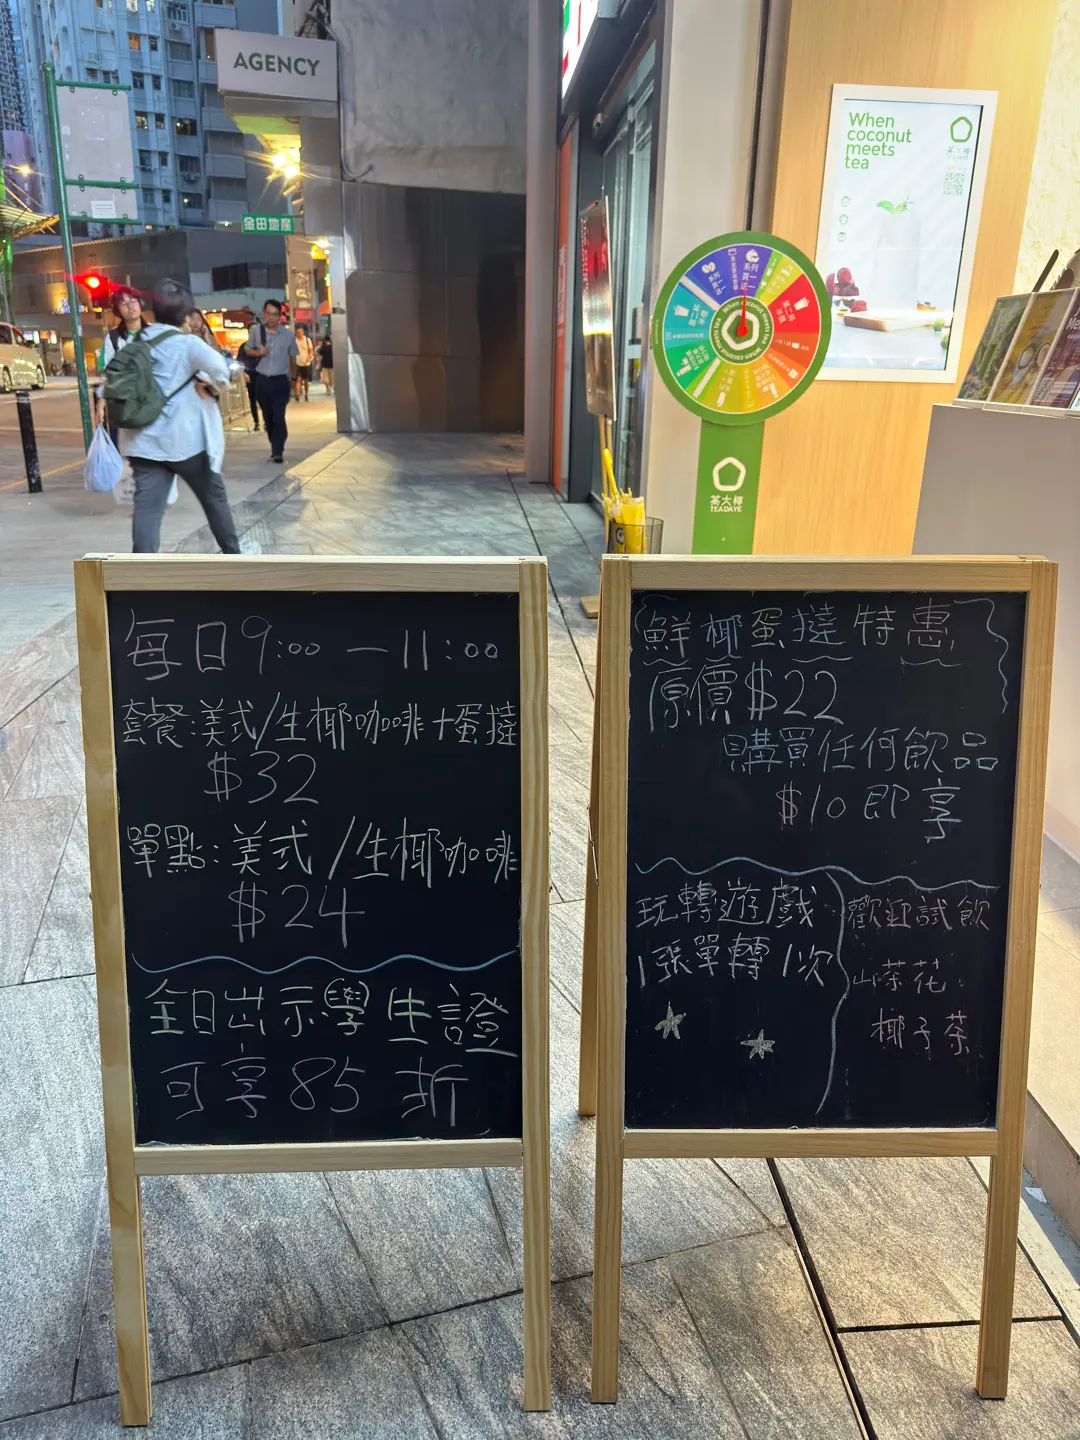 AGENCY
金田地產
When
coconut
meets
tea
茶大椰
TEADAYE
茶大椰
TEADAYE
每日9:00 — 11:00
套餐:美式/生椰咖啡+蛋撻
$32
單點:美式/生椰咖啡
$24
全日出示學生證
可享85折
鮮椰蛋撻特惠
原價$22
購買任何飲品
$10即享
玩轉遊戲
1張單轉1次
歡迎試飲
山茶花:
椰子茶